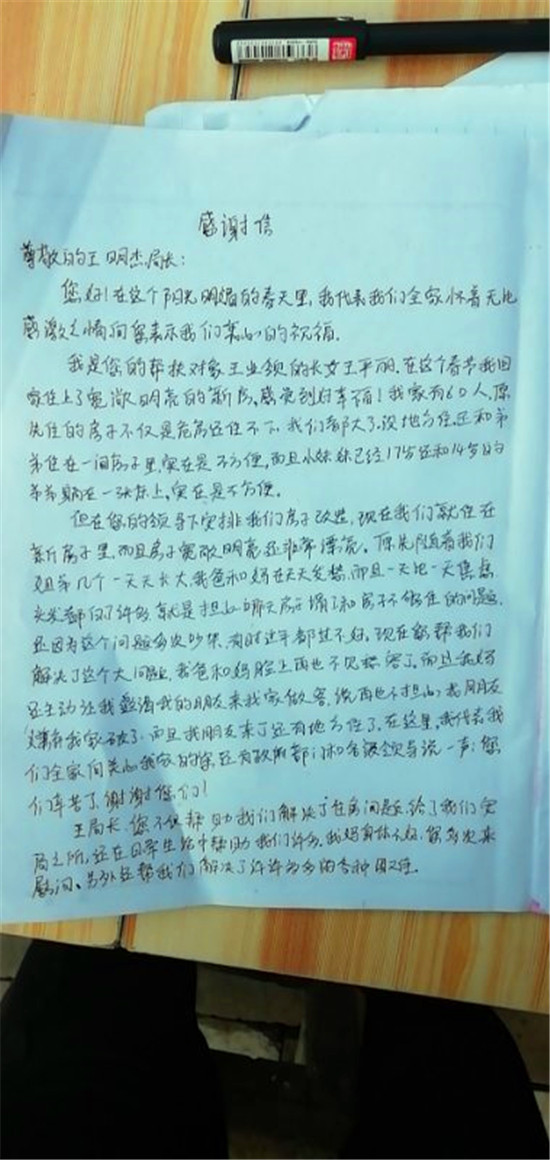 感谢信
尊敬的王明杰局长：
您好！在这个阳光明媚的春天里，我代表我们全家怀着无比
感激之情向您表示我们衷心的祝福。
我是您的帮扶对象王业领的长女王平丽。在这个春节我回
家住上了宽敞明亮的新房，感觉到好幸福！我家有6口人，原
先住的房子不仅是危房还住不下。我们都大了，没地方住还和弟
弟住在一间房子里，实在是不方便，而且小妹妹已经17岁还和14岁的
弟弟躺在一张床上，实在是不方便。
但在您的领导下安排我们房子改造，现在我们就住在
新房子里，而且房子宽敞明亮还非常漂亮。原先随着我们
姐弟几个一天天长大，我爸和妈在天天发愁，而且一天比一天焦虑
头发都白了许多，就是担心哪天房子塌了和房子不够住的问题，
还因为这个问题多次吵架，有时过年都过不好。现在您帮我们
解决了这个大问题，我爸和妈脸上再也不见愁容了。而且我妈
还主动让我邀请我的朋友来我家做客，说再也不担心我朋友
嫌弃我家破了，而且我朋友来了还有地方住了。在这里，我代表我
们全家向关心我家的您，还有政府部门和各级领导说一声：您
们辛苦了，谢谢您们！
王局长，您不仅帮助我们解决了住房问题，给了我们安
居之所，还在日常生活中帮助我们许多，我妈身体不好，您多次来
慰问。另外还帮我们解决了许许多多的各种困难。